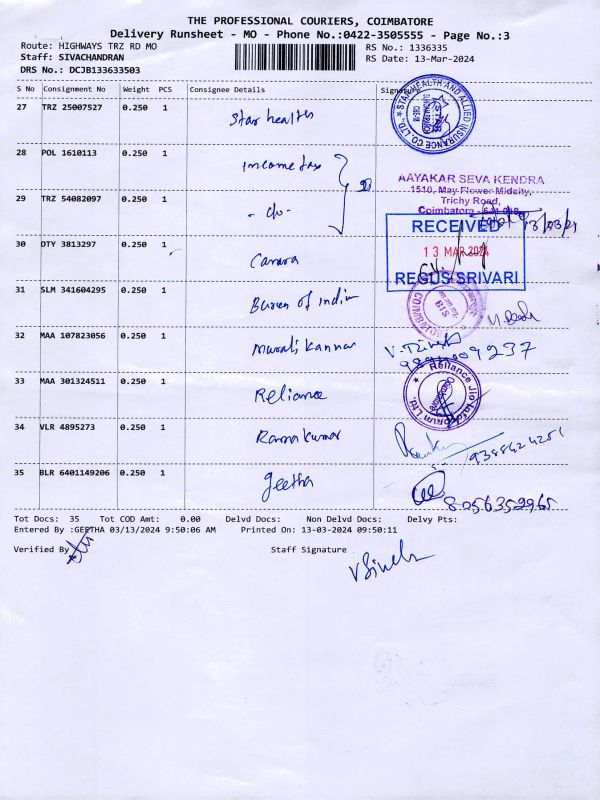 THE PROFESSIONAL COURIERS, COIMBATORE
Delivery Runsheet - MO - Phone No.:0422-3505555 - Page No.:3
Route: HIGHWAYS TRZ RD MO RS No.: 1336335
Staff: SIVACHANDRAN RS Date: 13-Mar-2024
DRS No.: DCJB133633503
S No Consignment No Weight PCS Consignee Details Signature
27 TRZ 25007527 0.250 1 Star health
STAR HEALTH AND ALLIED INSURANCE CO. LTD.,
28 POL 1610113 0.250 1 Income tax
AAYAKAR SEVA KENDRA
1510, May Flower Midcity,
Trichy Road,
Coimbatore - 641 018
29 TRZ 54082097 0.250 1 - do -
RECEIVED
13 MAR 2024
REGUS SRIVARI
30 DTY 3813297 0.250 1 Canara
31 SLM 341604295 0.250 1 Bureu of India
COIMBATORE
BIS
32 MAA 107823056 0.250 1 Murali Kannan
33 MAA 301324511 0.250 1 Reliance
Reliance Jio Infocomm Ltd.
34 VLR 4895273 0.250 1 Ramakumar
9388424251
35 BLR 6401149206 0.250 1 geetha
8056352965
Tot Docs: 35 Tot COD Amt: 0.00 Delvd Docs: Non Delvd Docs: Delvy Pts:
Entered By :GEETHA 03/13/2024 9:50:06 AM Printed On: 13-03-2024 09:50:11
Verified By Staff Signature